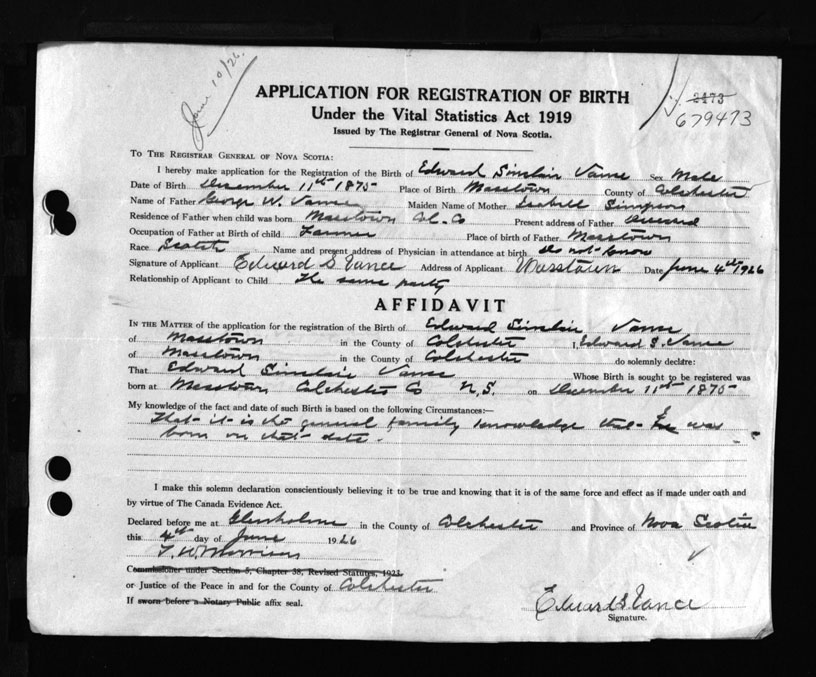 June 10/26.
APPLICATION FOR REGISTRATION OF BIRTH
Under the Vital Statistics Act 1919
Issued by The Registrar General of Nova Scotia.
2473
679473
To The Registrar General of Nova Scotia:
I hereby make application for the Registration of the Birth of Edward Sinclair Vance Sex Male
Date of Birth December 11th 1875 Place of Birth Masstown County of Colchester
Name of Father George W. Vance Maiden Name of Mother Isabell Simpson
Residence of Father when child was born Masstown Col. Co Present address of Father Deceased
Occupation of Father at Birth of child Farmer Place of birth of Father Masstown
Race Scotch Name and present address of Physician in attendance at birth do not know
Signature of Applicant Edward S Vance Address of Applicant Masstown Date June 4th 1926
Relationship of Applicant to Child The same party
AFFIDAVIT
In the Matter of the application for the registration of the Birth of Edward Sinclair Vance
of Masstown in the County of Colchester I, Edward S. Vance
of Masstown in the County of Colchester do solemnly declare:
That Edward Sinclair Vance Whose Birth is sought to be registered was
born at Masstown Colchester Co N.S. on December 11th 1875
My knowledge of the fact and date of such Birth is based on the following Circumstances:—
That it is the general family knowledge that was
born on that date.
I make this solemn declaration conscientiously believing it to be true and knowing that it is of the same force and effect as if made under oath and
by virtue of The Canada Evidence Act.
Declared before me at Glenholme in the County of Colchester and Province of Nova Scotia
this 4th day of June 1926
Morrison
Commissioner under Section 5, Chapter 38, Revised Statutes, 1923
or Justice of the Peace in and for the County of Colchester
If sworn before a Notary Public affix seal.
Edward S Vance
Signature.